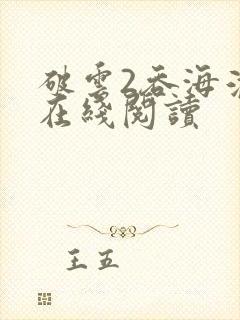 破雲2吞海
在綫閱讀
王五